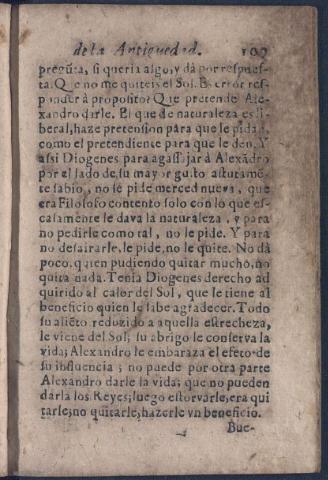 de la Antiguedad. 109
pregũta, si queria algo, y dà por respues-
ta. Que no me quiteis el Sol. Es error res-
ponder à proposito? Que pretende Ale-
xandro darle. El que de naturaleza es li-
beral, haze pretension para que le pidan,
como el pretendiente para que le den. Y
assi Diogenes para agassajar à Alexãdro
por el lado de su mayor gusto astutamẽ-
te sabio, no le pide merced nueva, que
era Filosofo contento solo con lo que es-
casamente le dava la naturaleza, y para
no pedirle como tal, no le pide. Y para
no desairarle, le pide, no le quite. No dà
poco, quien pudiendo quitar mucho, no
quita nada. Tenia Diogenes derecho ad
quirido al calor del Sol, que le tiene al
beneficio quien le sabe agradecer. Todo
su aliẽto reduzido a aquella estrecheza,
le viene del Sol, su abrigo le conserva la
vida; Alexandro le embaraza el efeto de
su influencia; no puede por otra parte
Alexandro darle la vida; que no pueden
darla los Reyes; luego estorvarle, era qui
tarle; no quitarle, hazerle vn beneficio.
Bue-